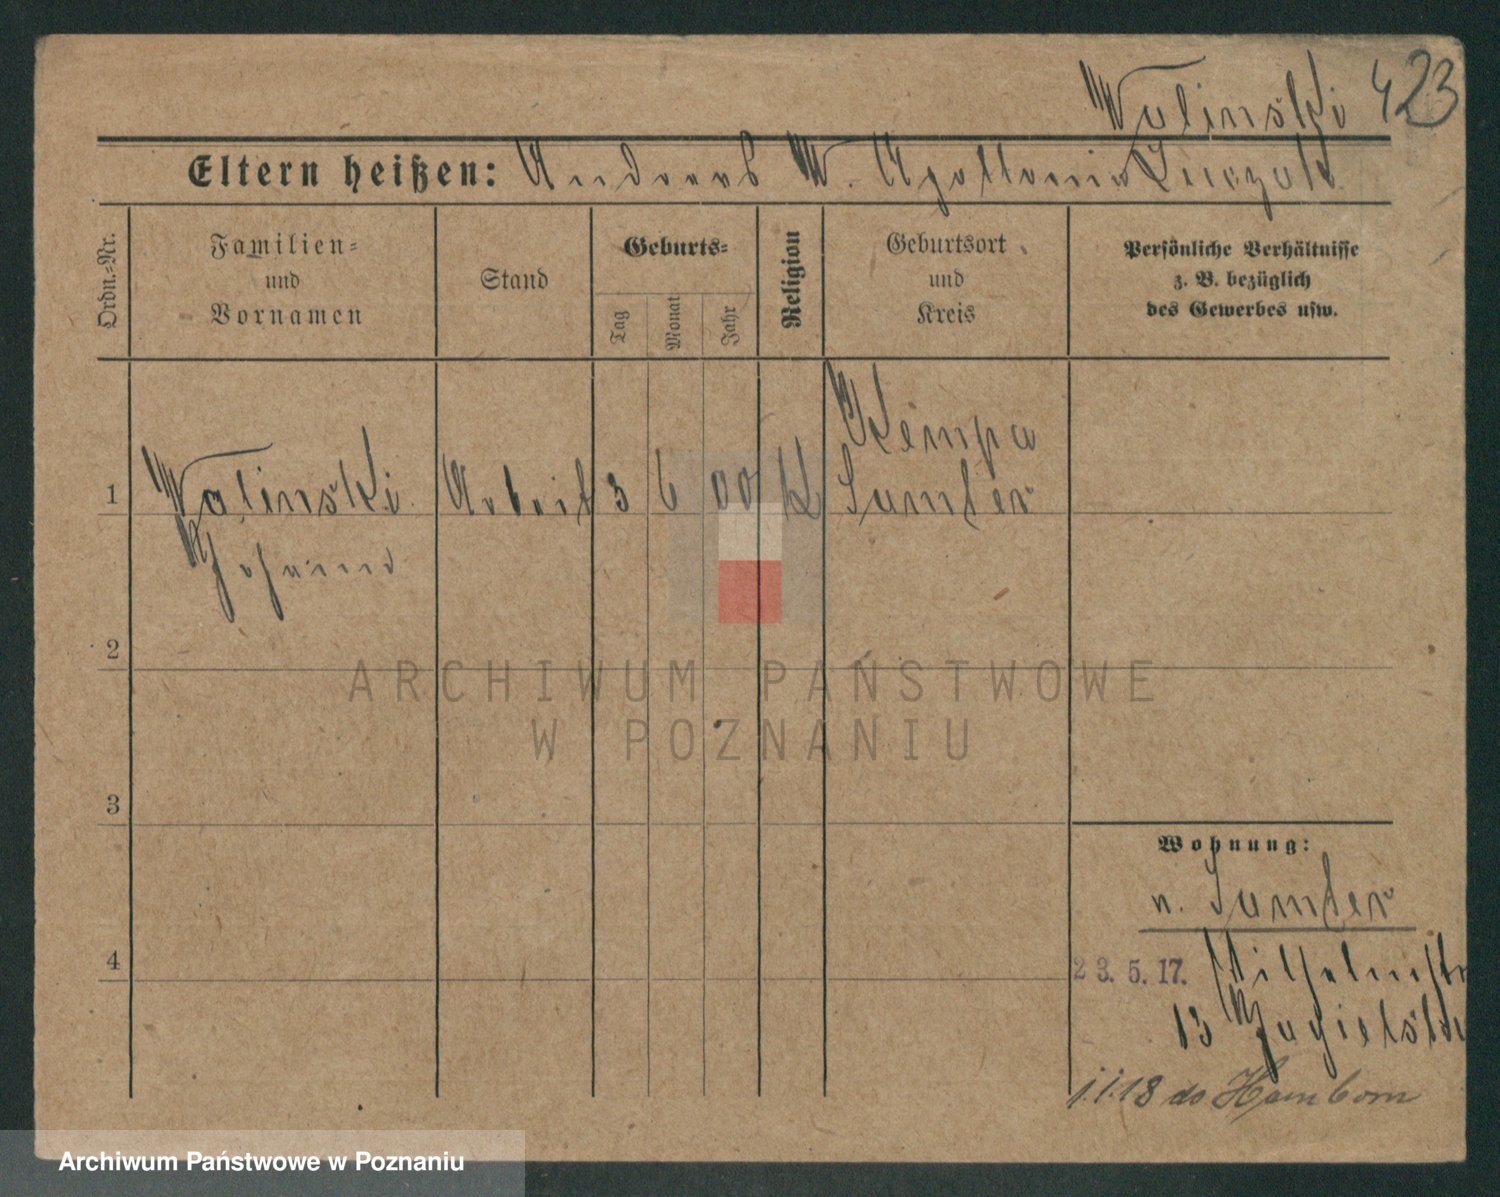 Walinski 423
Eltern heißen: Andreas W. Apollonia
Ordn.=Nr.
Familien=
und
Vornamen
Stand
Geburts=
Tag
Monat
Jahr
Religion
Geburtsort
und
Kreis
Persönliche Verhältnisse
z. B. bezüglich
des Gewerbes usw.
Kempa
1 Walinski Arbeit 3 6 00 K Samter
Johann
2
ARCHIWUM PAŃSTWOWE
W POZNANIU
3
Wohnung:
n. Samter
4
23. 5. 17. Wilhelmstr
13
1.1.18 do Hamborn
Archiwum Państwowe w Poznaniu